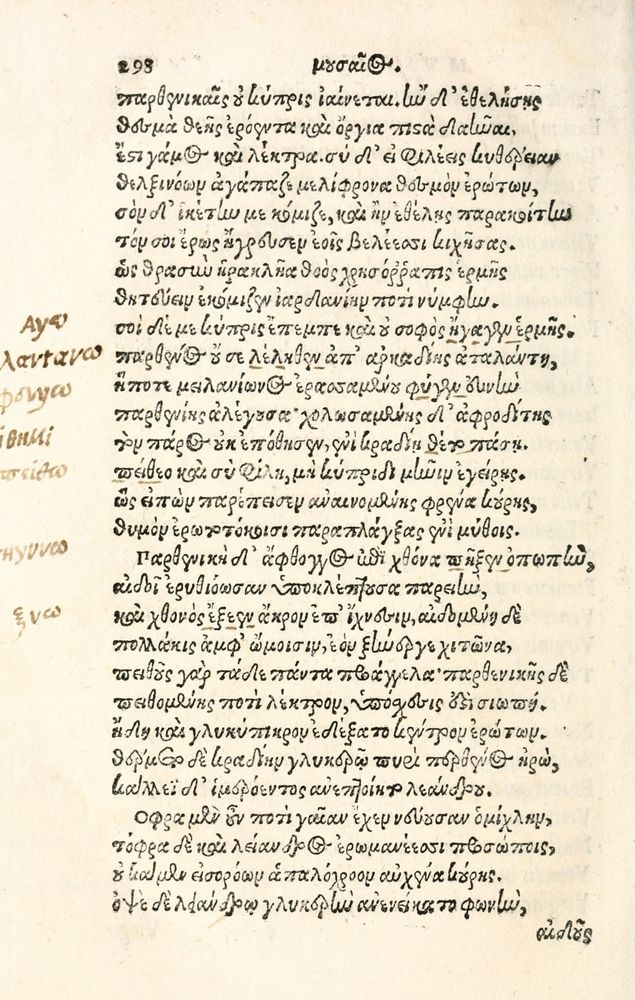 298 μουσαῖος.
παρθενικαῖς οὐ κύπρις ἰαίνεται. ἢν δ' ἐθελήσῃς
θεσμὰ θεῆς ἐρόεντα καὶ ὄργια πιστὰ δαῶναι,
ἔστι γάμος καὶ λέκτρα. σὺ δ' εἰ φιλέεις κυθέρειαν
θελξινόων ἀγάπαζε μελίφρονα θεσμὸν ἐρώτων,
σὸν δ' ἱκέτην με κόμιζε, καὶ ἢν ἐθέλῃς παρακοίτην
τόν σοι ἔρως ἤγρευσεν ἑοῖς βελέεσσι κιχήσας.
ὡς θρασὺν ἡρακλῆα θοὸς χρυσόρραπις ἑρμῆς
θητεύειν ἐκόμιζεν ἰαρδανίην ποτὶ νύμφην.
σοὶ δέ με κύπρις ἔπεμπε καὶ οὐ σοφὸς ἤγαγεν ἑρμῆς.
Αγω
παρθένος οὔ σε λέληθεν ἀπ' ἀρκαδίης ἀταλάντη,
λαντανω
ἥ ποτε μειλανίωνος ἐρασσαμένου φύγεν εὐνὴν
φευγω
παρθενίης ἀλέγουσα· χολωσαμένης δ' ἀφροδίτης
τὸν πάρος οὐκ ἐπόθησεν, ἐνὶ κραδίῃ θέτο πάσῃ.
ιθημι
πείθεο καὶ σὺ φίλη, μὴ κύπριδι μῆνιν ἐγείρῃς.
πειθω
ὣς εἰπὼν παρέπεισεν ἀναινομένης φρένα κούρης,
θυμὸν ἐρωτοτόκοισι παραπλάγξας ἐνὶ μύθοις.
Παρθενικὴ δ' ἄφθογγος ἐπὶ χθόνα πῆξεν ὀπωπὴν,
πηγνυω
αἰδοῖ ἐρυθιόωσαν ὑποκλέπτουσα παρειὴν,
καὶ χθονὸς ἔξεεν ἄκρον ἐπ' ἴχνεσιν, αἰδομένη δὲ
ξνω
πολλάκις ἀμφ' ὤμοισιν, ἑὸν ξυνέεργε χιτῶνα,
πειθοῦς γὰρ τάδε πάντα προάγγελα· παρθενικῆς δὲ
πειθομένης ποτὶ λέκτρον, ὑπόσχεσις ἐστὶ σιωπή.
ἤδη καὶ γλυκύπικρον ἐδέξατο κέντρον ἐρώτων.
θέρμετο δὲ κραδίην γλυκερῷ πυρὶ παρθένος ἡρώ,
κάλλεϊ δ' ἱμερόεντος ἀνεπτοίητο λεάνδρου.
Οφρα μὲν οὖν ποτὶ γαῖαν ἔχεν νεύουσαν ὀμίχλην,
τόφρα δὲ καὶ λείανδρος ἐρωμανέεσσι προσώποις,
οὐ κάμεν εἰσορόων ἁπαλόχροον αὐχένα κούρης.
ὀψὲ δὲ λεάνδρῳ γλυκερὴν ἀνενείκατο φωνὴν,
αἰδοῦς